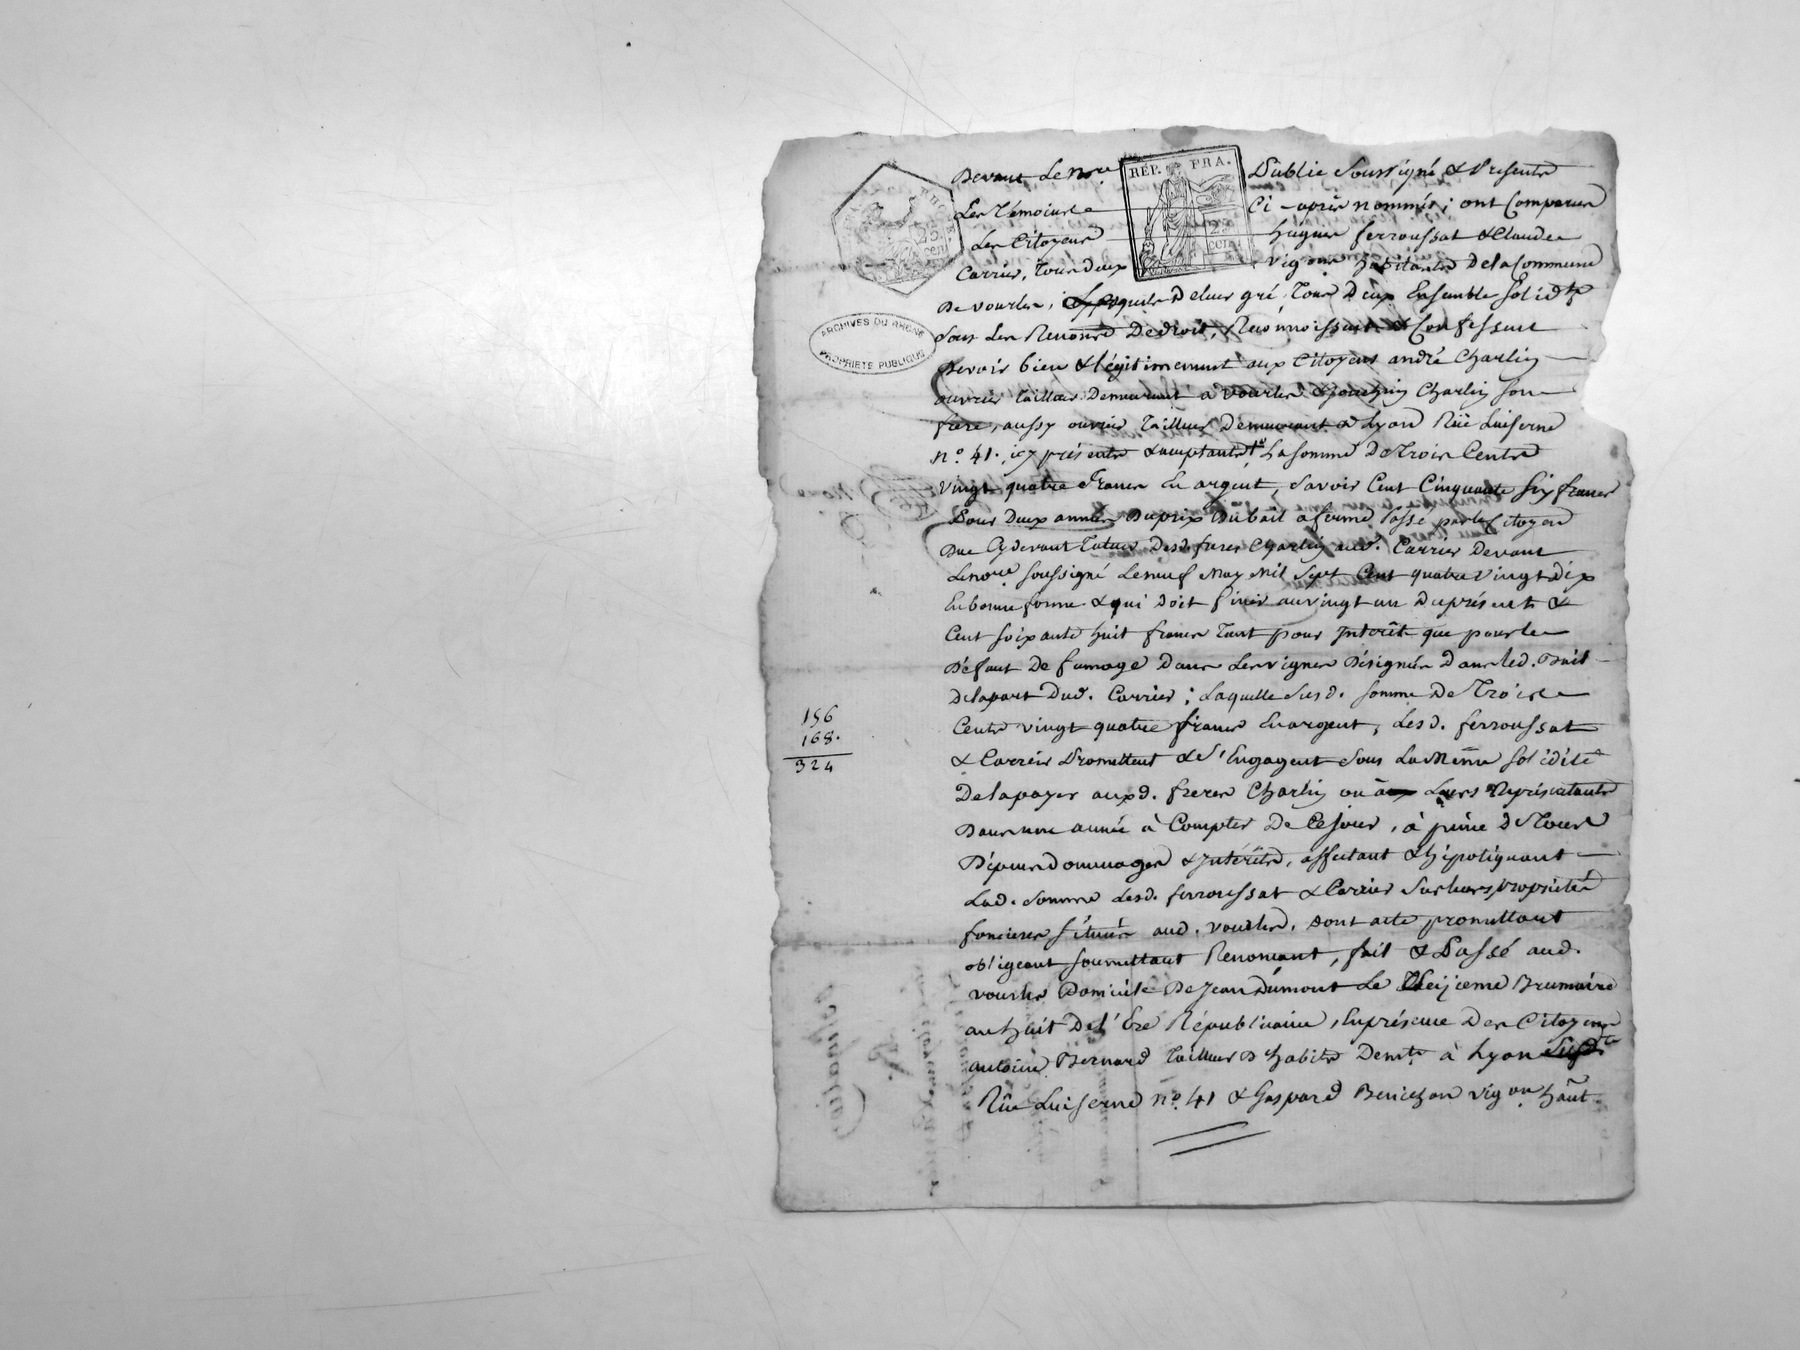 Devant le no.re Public Soussigné & Présents
Les Témoins ci-après nommés ; ont Comparus
Les Citoyens hugues ferroussat & Claude
Carrier, Tous deux vig.ons habitants De la Commune
De vourles, Lesquels De leur gré, Tous Deux Ensemble solid.t
sous Les Renonc.s De droit, Reconnoissent & Confessent
Devoir bien & légitimement aux Citoyens andré Charlin
ouvrier Tailleur Demeurant à vourles & joachin Charlin son
frere, aussy ouvrier Tailleur Demeurant à Lyon Rüe Luiserne
n.o 41. icy présents & acceptants, La somme De Trois Cents
vingt quatre francs En argent, Savoir Cent Cinquante Six francs
Pour Deux années Du prix Du bail a ferme Passé par le Citoyen
Duc Cydevant Tuteur Desd. freres Charlin aud. Carrier Devant
Le no.re soussigné Le neuf May Mil Sept Cent quatre vingt dix
En bonne forme & qui doit finir au vingt un Du présent &
Cent soixante huit francs Tant pour Intérêt que pour le
Défaut De fumage Dans Les vignes Désignées Dans led. Bail
De la part Dud. Carrier ; Laquelle Susd. somme De Trois
Cents vingt quatre francs En argent, Lesd. ferroussat
& Carrier Promettent & S'Engagent Sous La Même solidité
De la payer auxd. freres Charlin ou à Leurs Représentants
Dans une année à Compter De Ce jour, à peine De Tous
Dépens Dommages & Intérêts, affectant & hipotéquant
Lad. Somme Lesd. ferroussat & Carrier Sur Leurs propriétés
foncieres Situées aud. vourles. Dont acte promettant
obligeant soumettant Renonçant, fait & Passé aud.
vourles Domicile De Jean Dumont Le Seizieme Brumaire
an huit De l'Ere Républicaine, En présence Des Citoyens
antoine Bernard Tailleur D'habits Dem.t à Lyon
Rüe Luiserne n.o 41 & Gaspard Benichon vig.on hãnt
156
168.
324
RÉP. FRA.
25
CENT
ARCHIVES DU RHONE
PROPRIETE PUBLIQUE